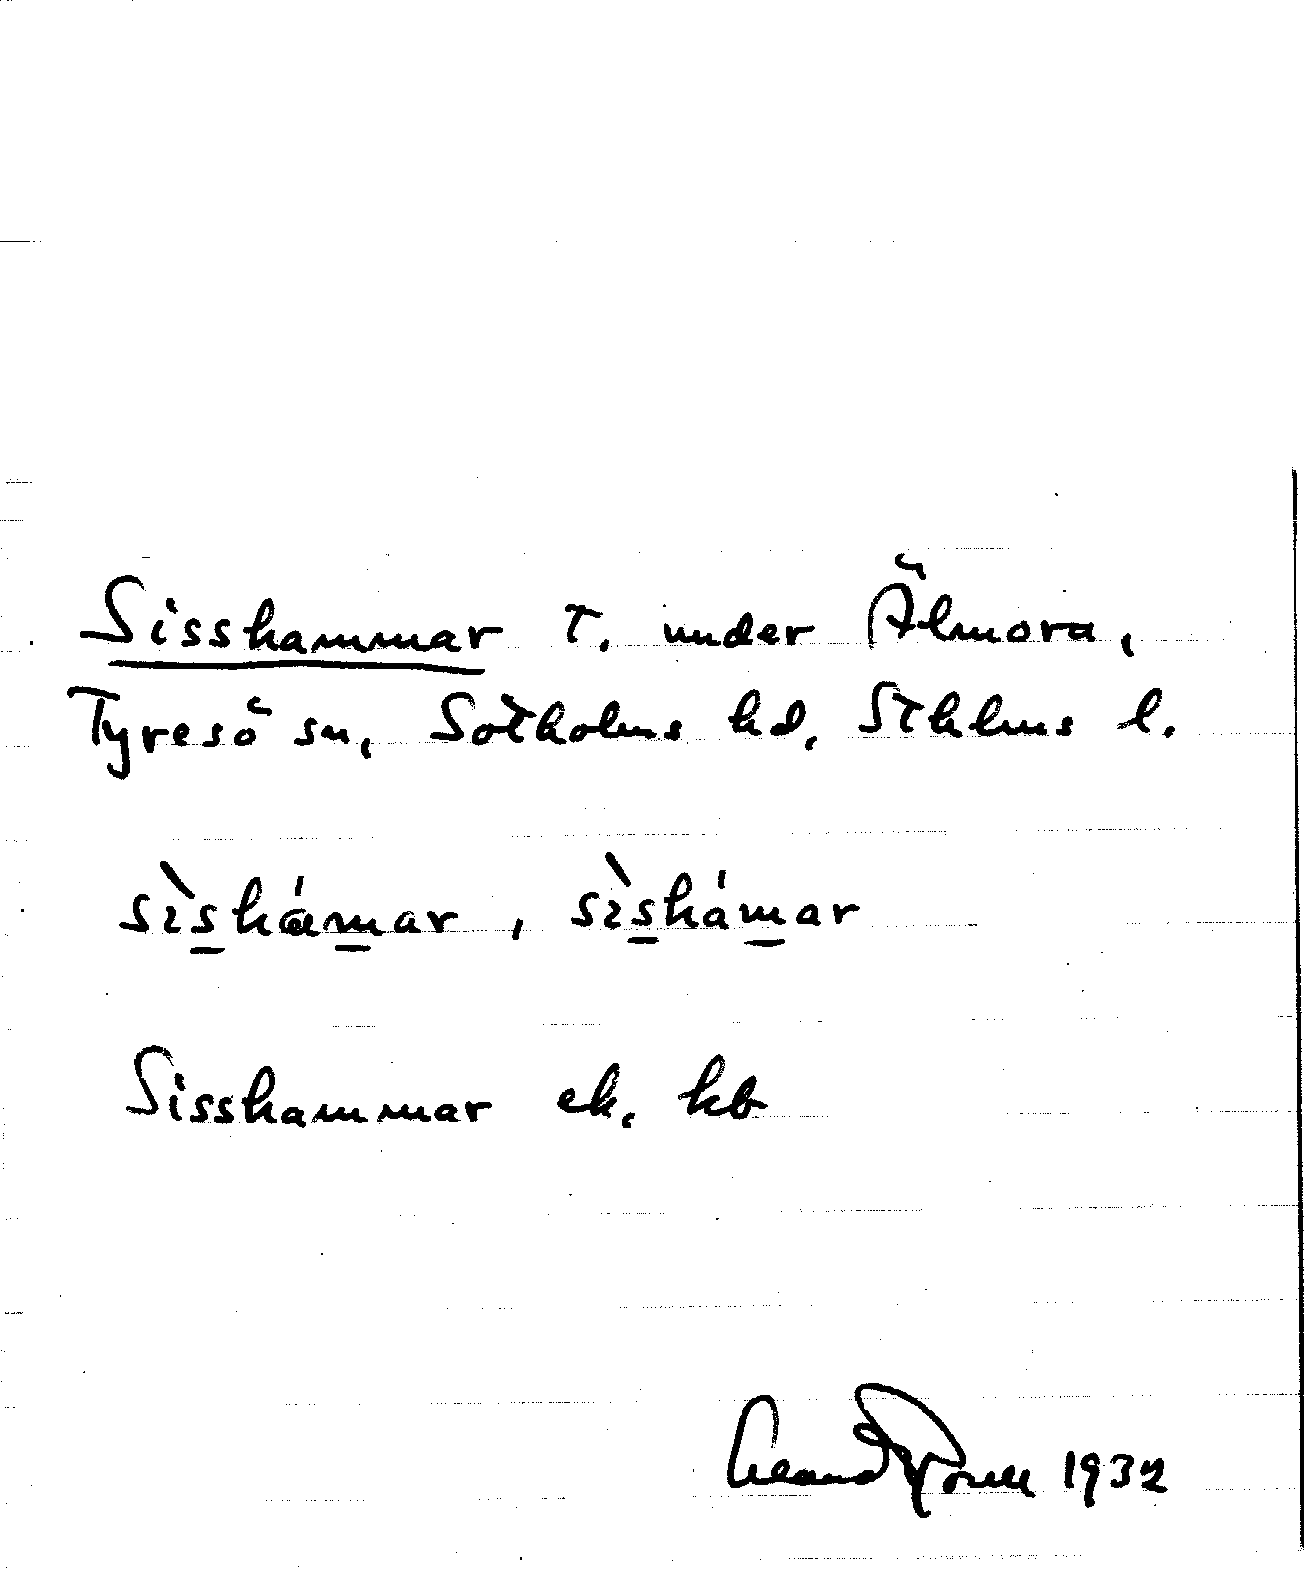 Sisshammar T. under Älmora,
Tyresö sn, Sotholms hd, Sthlms l.
sìshámar, sìshámar
Sisshammar ek. kb
1932